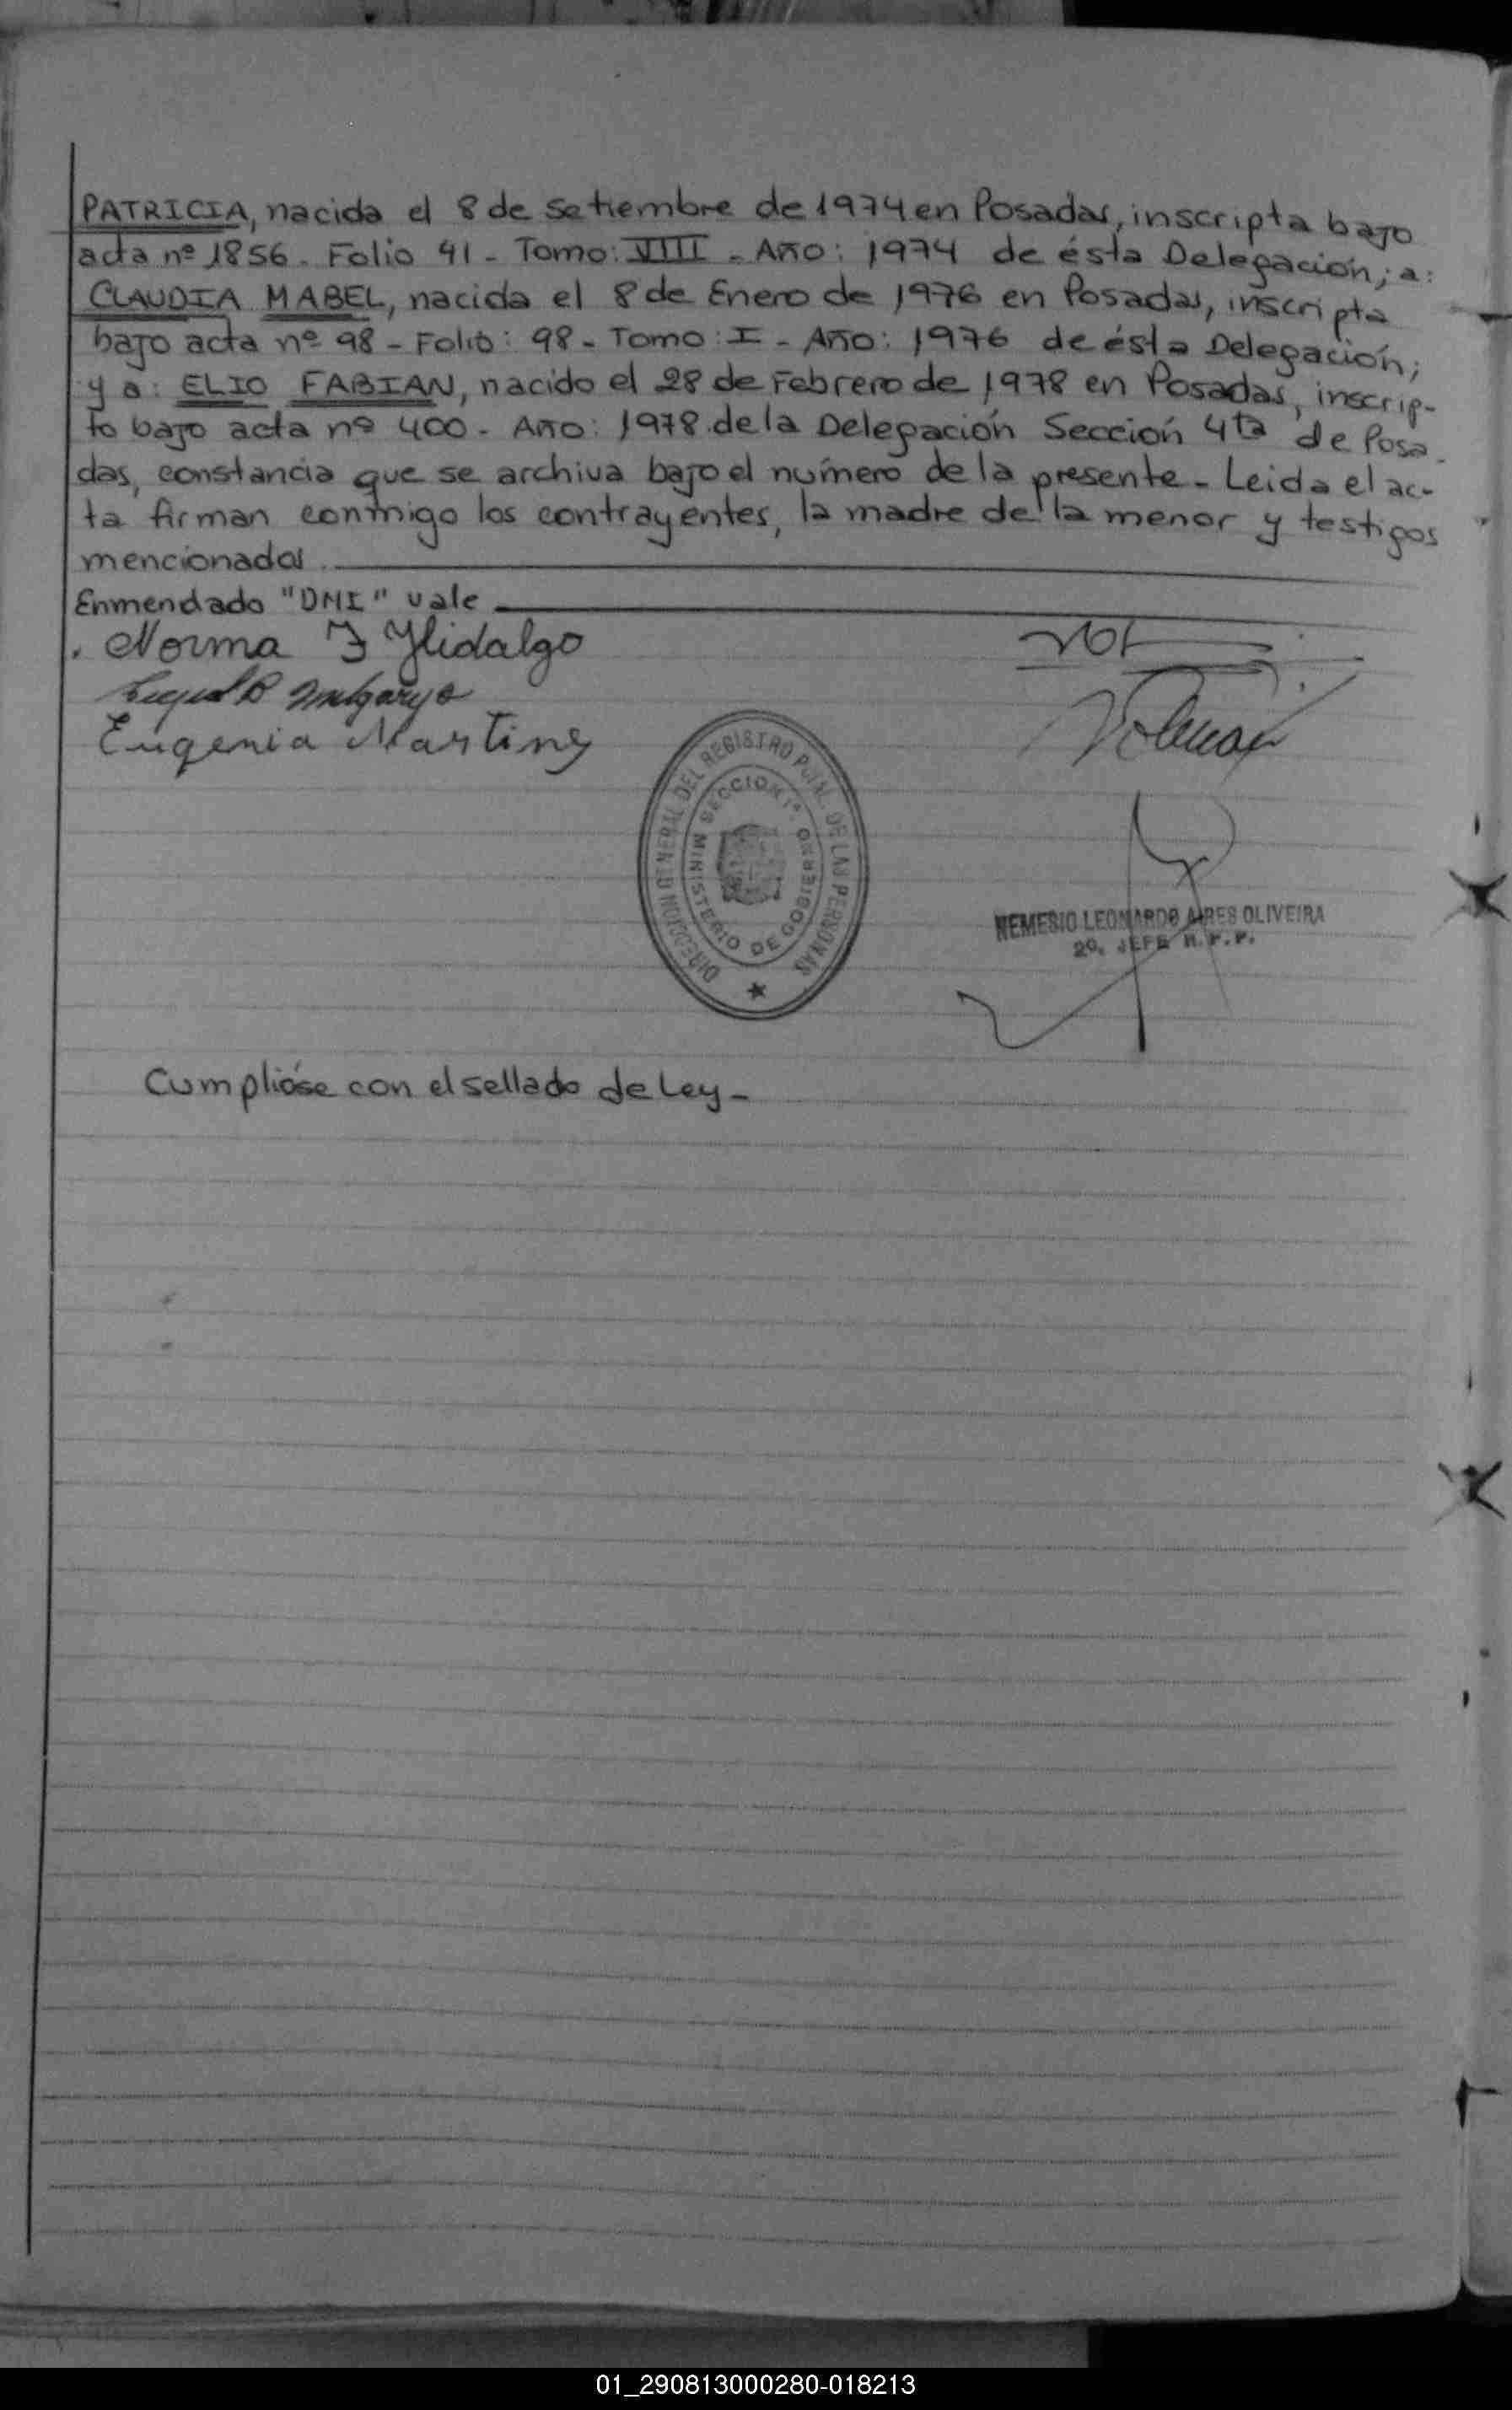 PATRICIA, nacida el 8 de setiembre de 1974 en Posadas, inscripta bajo
acta nº 1856. Folio 41 - Tomo: VIIII - Año: 1974 de ésta Delegación; a:
CLAUDIA MABEL, nacida el 8 de Enero de 1976 en Posadas, inscripta
bajo acta nº 98 - Folio: 98 - Tomo: I - Año: 1976 de ésta Delegación;
y a: ELIO FABIAN, nacido el 28 de Febrero de 1978 en Posadas, inscrip-
to bajo acta nº 400 - Año: 1978 de la Delegación Sección 4ta de Posa-
das, constancia que se archiva bajo el número de la presente - Leida el ac-
ta firman conmigo los contrayentes, la madre de la menor y testigos
mencionados
Enmendado "DNI" vale
Norma I Hidalgo
Eugenia Martinez
DIRECCION GENERAL DEL REGISTRO PCIAL. DE LAS PERSONAS
MINISTERIO DE GOBIERNO
SECCION 1ª.
NEMESIO LEONARDO AIRES OLIVEIRA
2º. JEFE R.P.P.
Cumplióse con el sellado de Ley -
01_290813000280-018213